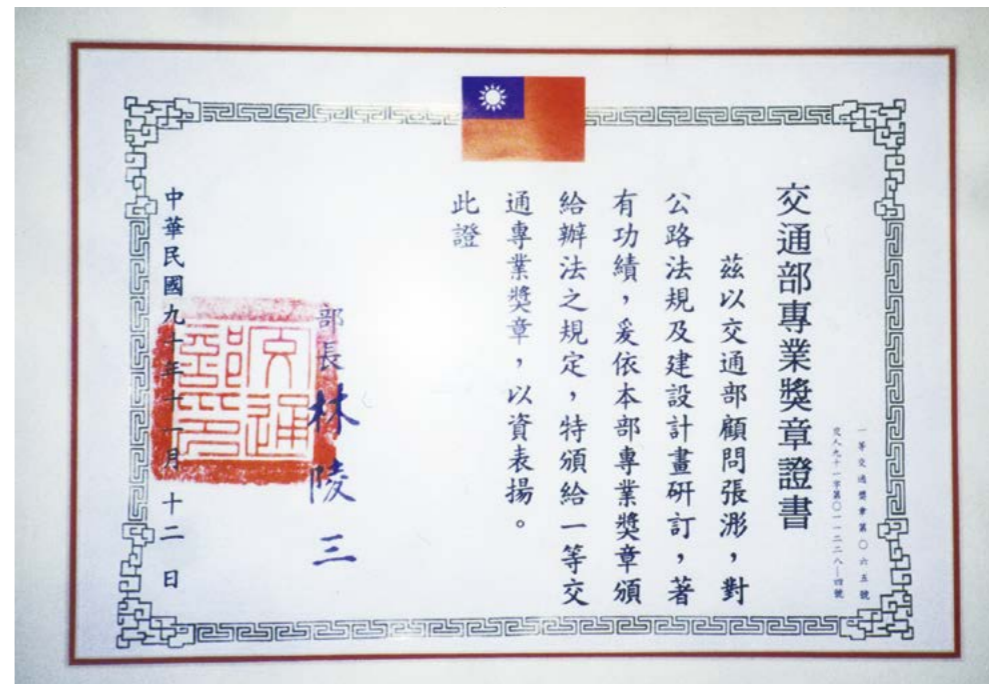 一等交通獎章第〇六五號
交人九十一字第〇一一二二八—四號
交通部專業獎章證書
茲以交通部顧問張浵,對
公路法規及建設計畫研訂,著
有功績,爰依本部專業獎章頒
給辦法之規定,特頒給一等交
通專業獎章,以資表揚。
此證
部長林陵三
交通部印
中華民國九十年十一月十二日